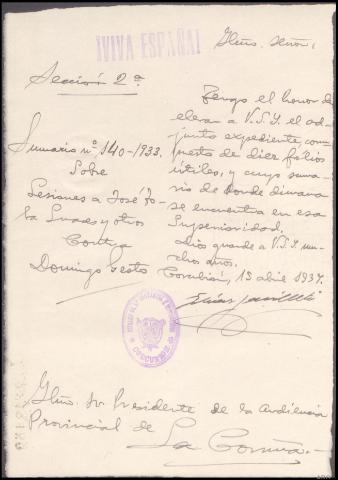 ¡VIVA ESPAÑA!
Iltmo. Señor:
Sección 2ª
Tengo el honor de
elevar a V.S.I. el ad-
junto expediente, com-
puesto de diez folios
útiles, y cuyo suma-
rio de donde dimana
se encuentra en esa
Superioridad.
Dios guarde a V.S.I. mu-
chos años.
Corcubión, 13 abril 1937.
Sumario nº 140-1933.
Sobre
Lesiones a José
y otros
Contra
Domingo Sesto
CORCUBION
Iltmo. Sr. Presidente de la Audiencia
Provincial de
La Coruña.-